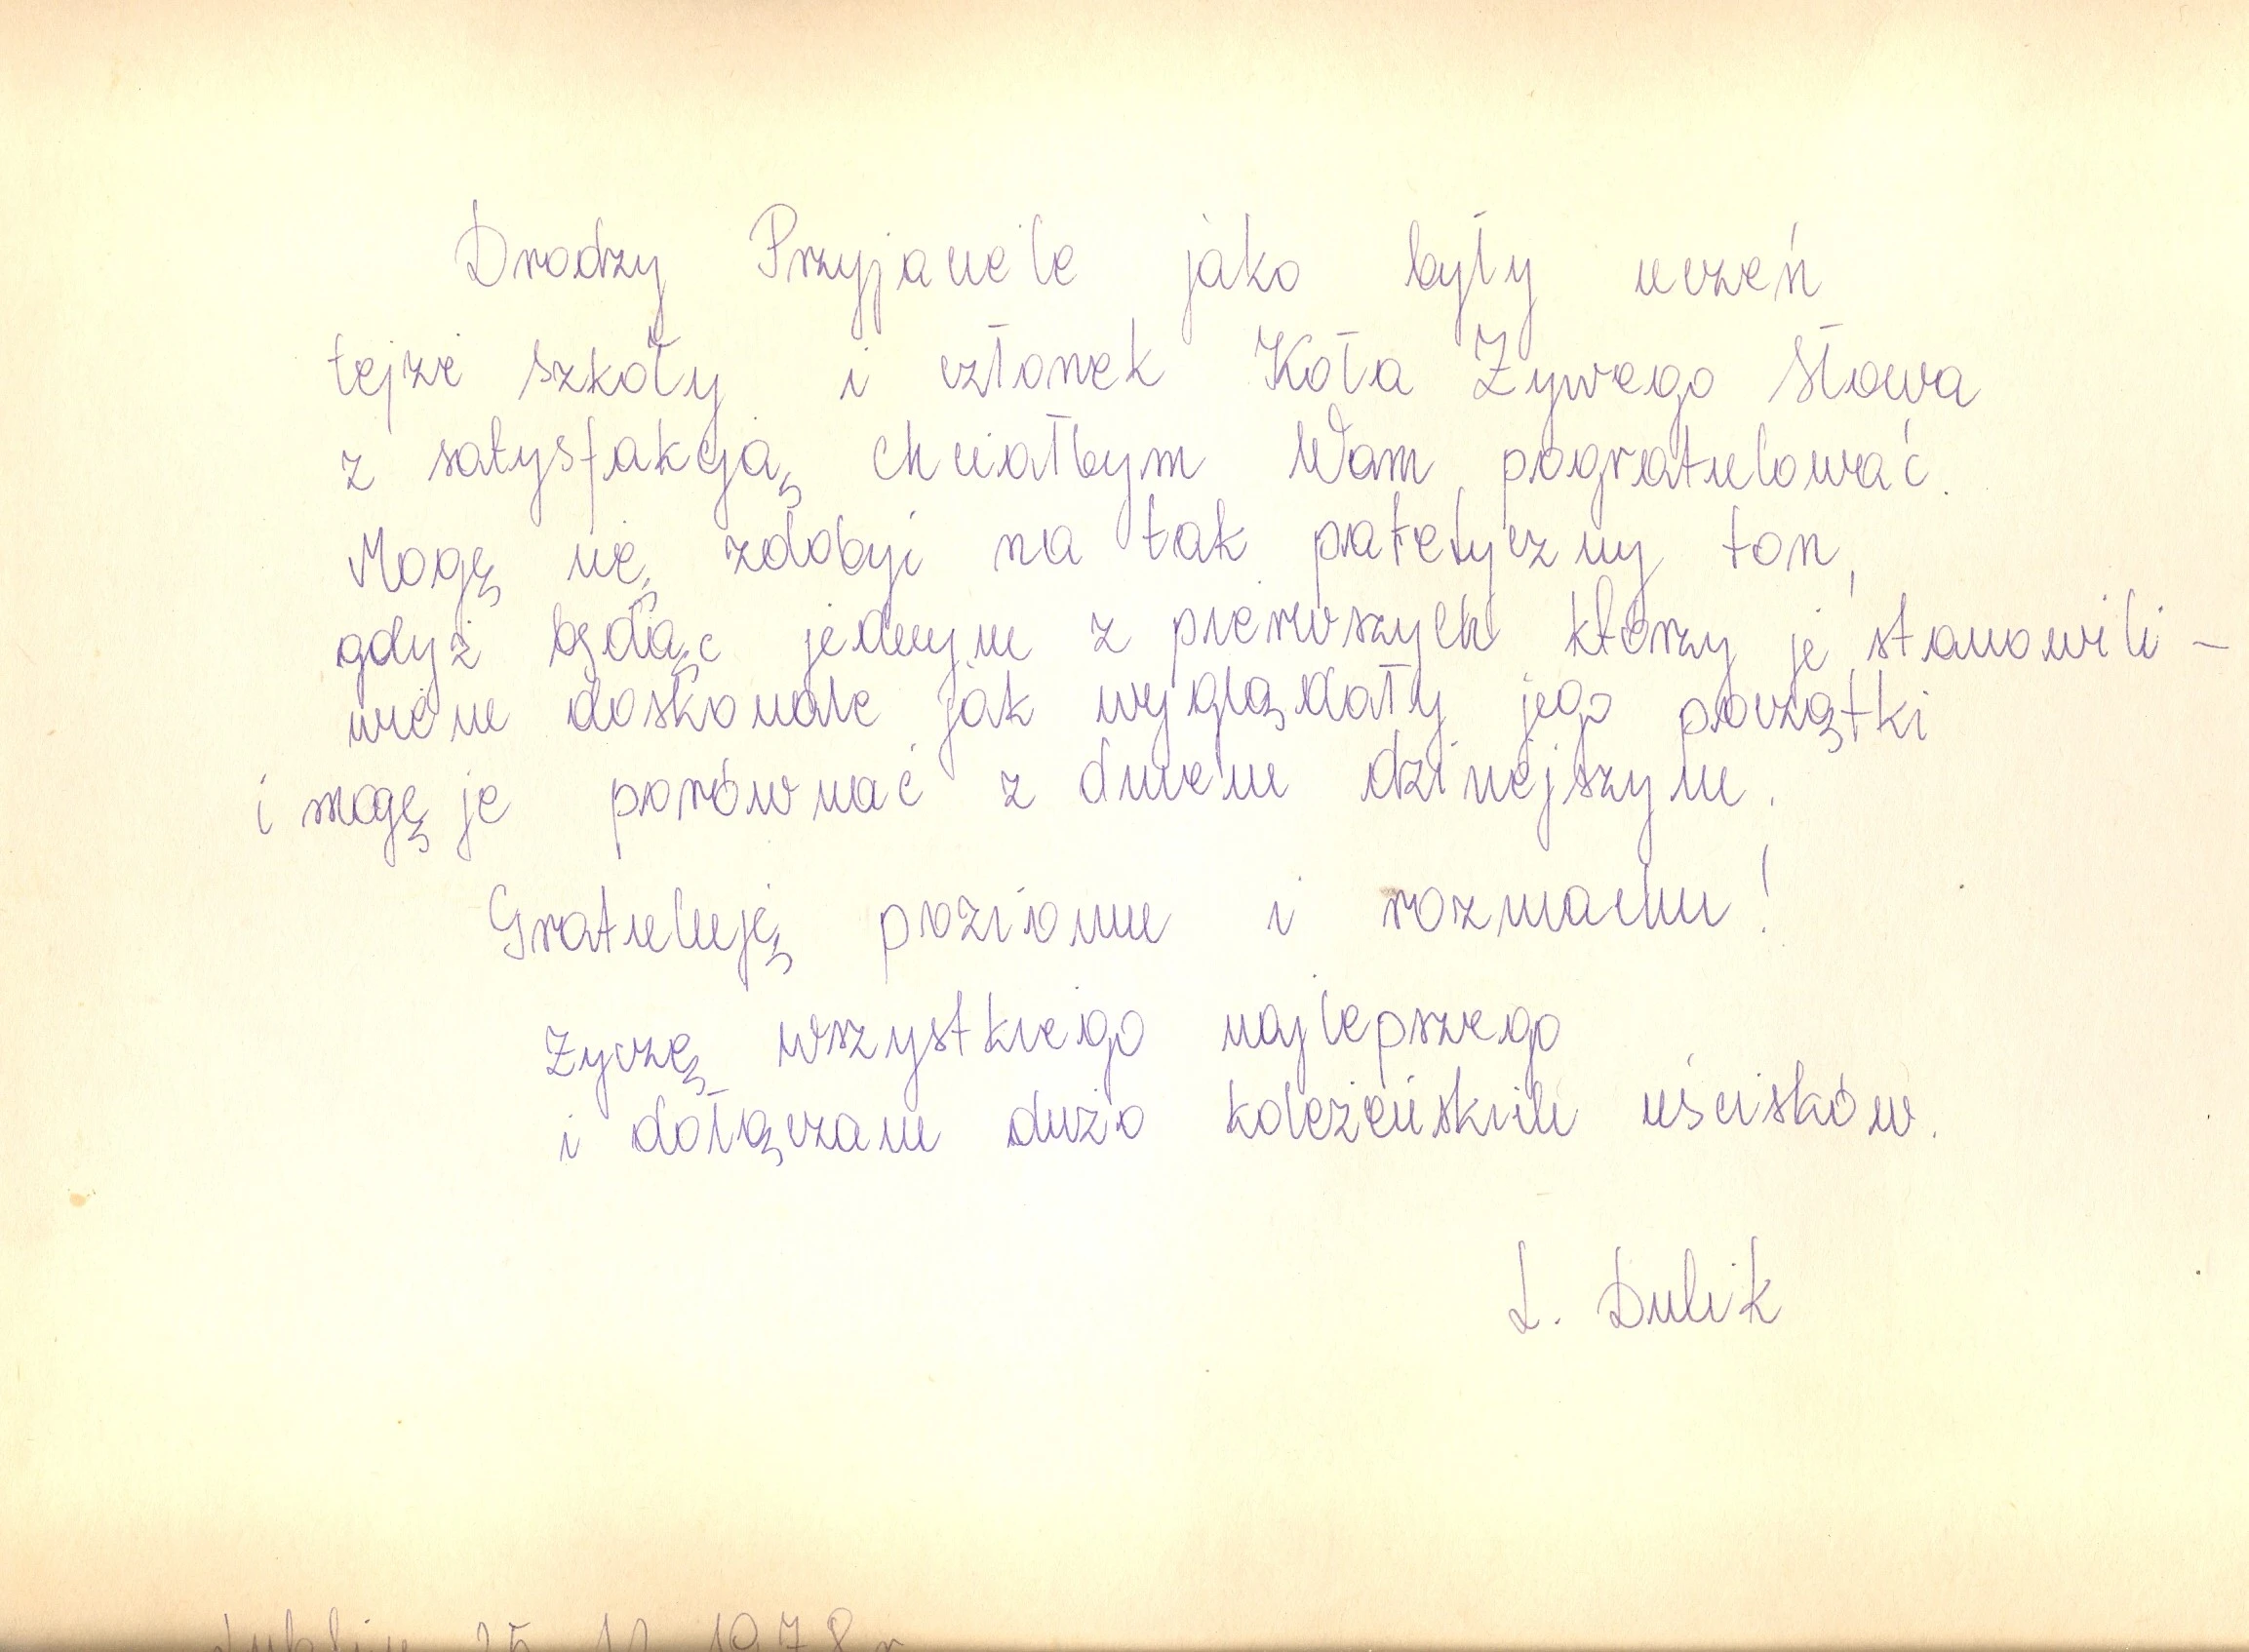 Drodzy Przyjaciele jako były uczeń
tejże szkoły i członek Koła Żywego Słowa
z satysfakcją chciałbym Wam pogratulować.
Mogę się zdobyć na tak patetyczny ton,
gdyż będąc jednym z pierwszych którzy je stanowili –
wiem doskonale jak wyglądały jego początki
i mogę je porównać z dniem dzisiejszym.
Gratuluję poziomu i rozmachu!
Życzę wszystkiego najlepszego
i dołączam dużo koleżeńskich uścisków.
L. Dulik
Lublin 25 11 1978 r